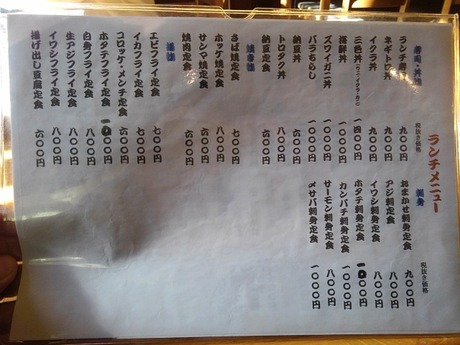 ランチメニュー
寿司・丼類 税抜き価格
ランチ寿司 九〇〇円
ネギトロ丼 九〇〇円
イクラ丼 九〇〇円
三色丼(ウニ・イクラ・カニ) 一四〇〇円
海鮮丼 一〇〇〇円
ズワイガニ丼 一〇〇〇円
バラちらし 一〇〇〇円
納豆丼 六〇〇円
トロタク丼 八〇〇円
納豆定食 六〇〇円
さば焼定食 七〇〇円
ホッケ焼定食 八〇〇円
サンマ焼定食 六〇〇円
焼肉定食 六〇〇円
エビフライ定食 七〇〇円
イカフライ定食 七〇〇円
コロッケ・メンチ定食 六〇〇円
ホタテフライ定食 一〇〇〇円
白身フライ定食 八〇〇円
生アジフライ定食 八〇〇円
イワシフライ定食 八〇〇円
揚げ出し豆腐定食 六〇〇円
刺身 税抜き価格
おまかせ刺身定食 九〇〇円
アジ刺身定食 八〇〇円
イワシ刺身定食 八〇〇円
ホタテ刺身定食 一〇〇〇円
カンパチ刺身定食 一〇〇〇円
サーモン刺身定食 八〇〇円
メサバ刺身定食 一〇〇〇円